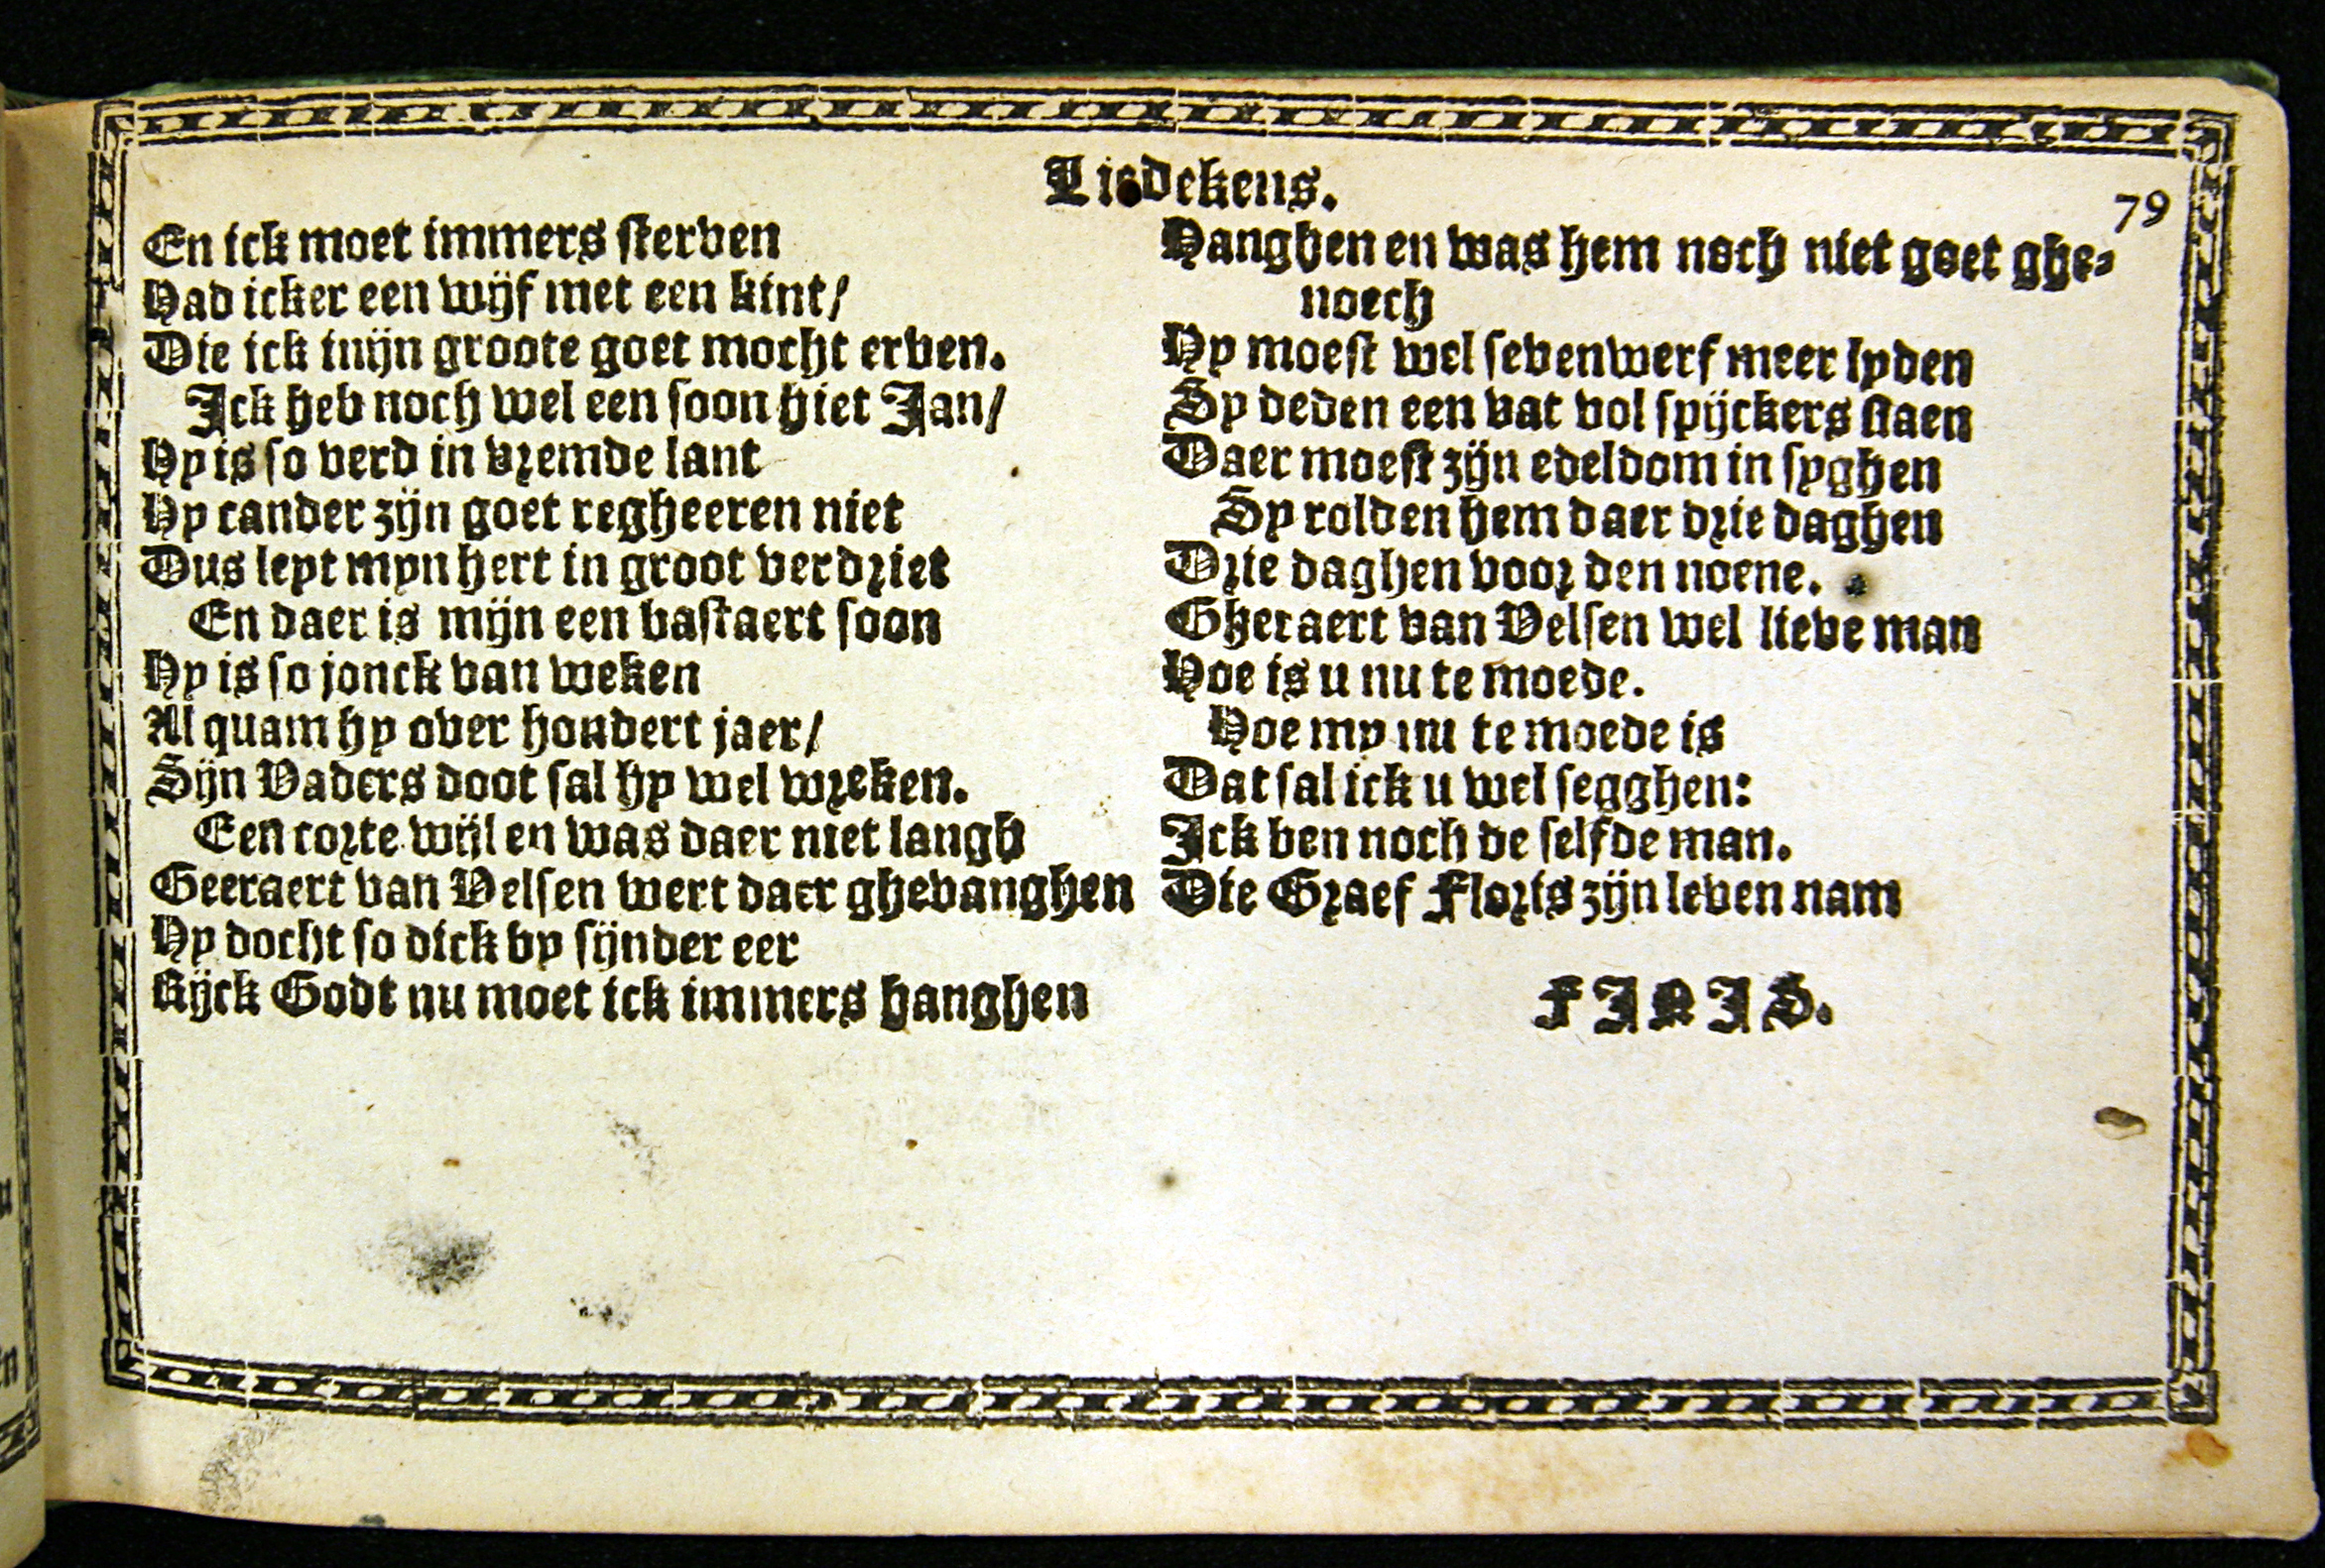 Liedekens.
79
En ick moet immers sterven
Had icker een wijf met een kint/
Die ick mijn groote goet mocht erven.
Ick heb noch wel een soon hiet Jan/
Hy is so verd in vremde lant
Hy cander zijn goet regheeren niet
Dus leyt myn hert in groot verdriet
En daer is mijn een bastaert soon
Hy is so jonck van weken
Al quam hy over hondert jaer/
Sijn Vaders doot sal hy wel wreken.
Een corte wijl en was daer niet langh
Geeraert van Velsen wert daer ghevanghen
Hy docht so dick by sijnder eer
Rijck Godt nu moet ick immers hanghen
Hanghen en was hem noch niet goet ghe-
noech
Hy moest wel sevenwerf meer lyden
Sy deden een vat vol spijckers slaen
Daer moest zijn edeldom in syghen
Sy rolden hem daer drie daghen
Drie daghen voor den noene.
Gheraert van Velsen wel lieve man
Hoe is u nu te moede.
Hoe my nu te moede is
Dat sal ick u wel segghen:
Ick ben noch de selfde man.
Die Graef Floris zijn leven nam
FINIS.